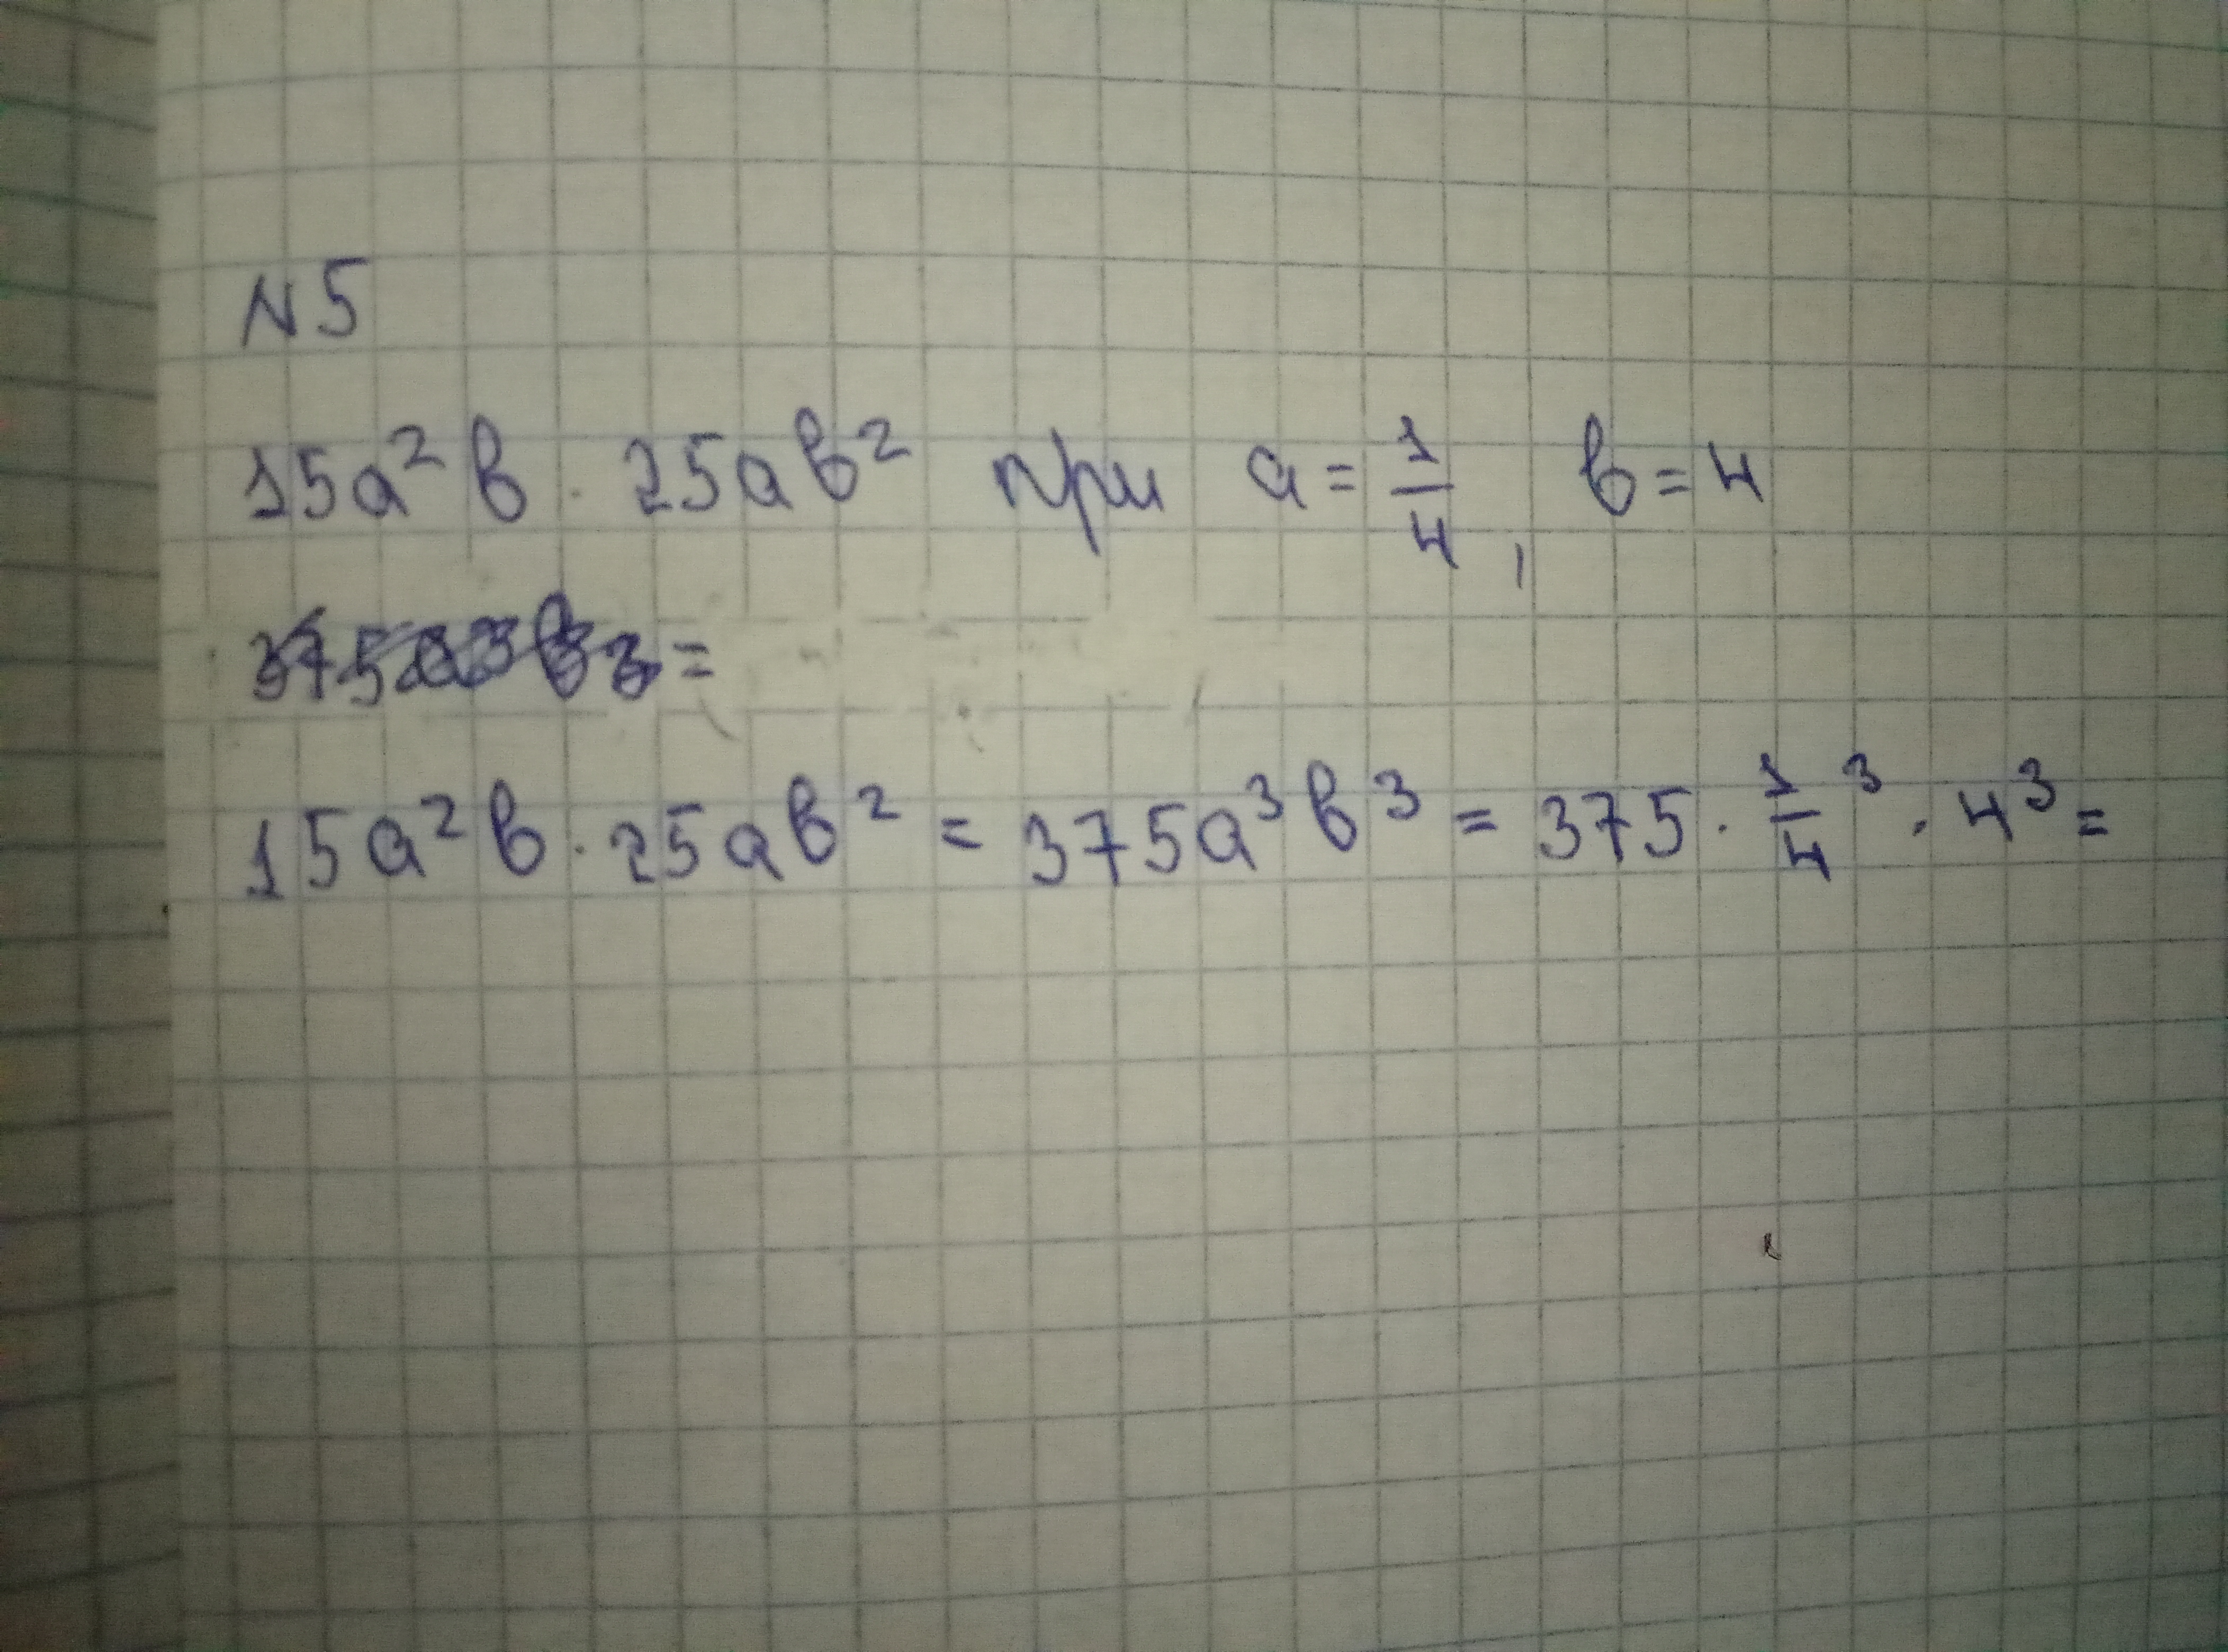 N 5
15a²b · 25ab² при a = 1/4, b = 4
375a³b³ =
15a²b · 25ab² = 375a³b³ = 375 · 1/4³ · 4³ =